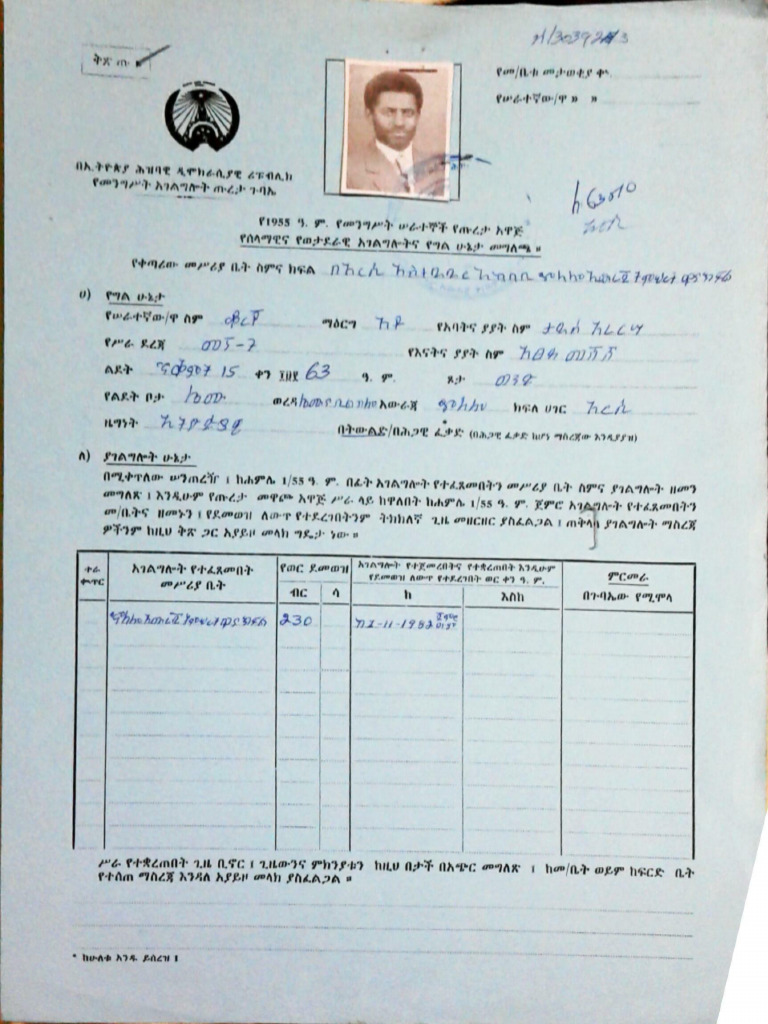 ቅጽ ጡ
የመ/ቤቱ መታወቂያ ቍ.
የሠራተኛው/ዋ » »
በኢትዮጵያ ሕዝባዊ ዲሞክራሲያዊ ሪፑብሊክ
የመንግሥት አገልግሎት ጡረታ ጉባኤ
የ1955 ዓ. ም. የመንግሥት ሠራተኞች የጡረታ አዋጅ
የሰላማዊና የወታደራዊ አገልግሎትና የግል ሁኔታ መግለጫ ።
የቀጣሪው መሥሪያ ቤት ስምና ክፍል በአርሲ አስተዳደር አካባቢ
ሀ) የግል ሁኔታ
የሠራተኛው/ዋ ስም ማዕርግ አቶ የአባትና ያያት ስም
የሥራ ደረጃ መፕ-7 የእናትና ያያት ስም
ልደት ጥቅምት 15 ቀን ፲፱፻ 63 ዓ. ም. ጾታ ወንድ
የልደት ቦታ ሌሙ ወረዳ አውራጃ ክፍለ ሀገር አርሲ
ዜግነት ኢትዮጵያዊ በትውልድ/በሕጋዊ ፈቃድ (በሕጋዊ ፈቃድ ከሆነ ማስረጃው እንዲያያዝ)
ለ) ያገልግሎት ሁኔታ
በሚቀጥለው ሠንጠረዥ ፤ ከሐምሌ 1/55 ዓ. ም. በፊት አገልግሎት የተፈጸመበትን መሥሪያ ቤት ስምና ያገልግሎት ዘመን
መግለጽ ፤ እንዲሁም የጡረታ መዋጮ አዋጅ ሥራ ላይ ከዋለበት ከሐምሌ 1/55 ዓ. ም. ጀምሮ አገልግሎት የተፈጸመበትን
መ/ቤትና ዘመኑን ፤ የደመወዝ ለውጥ የተደረገበትንም ትክክለኛ ጊዜ መዘርዘር ያስፈልጋል ፤ ጠቅላላ ያገልግሎት ማስረጃ
ዎችንም ከዚህ ቅጽ ጋር አያይዞ መላክ ግዴታ ነው ።
ተራ ቍጥር
አገልግሎት የተፈጸመበት መሥሪያ ቤት
የወር ደመወዝ
ብር ሳ
አገልግሎት የተጀመረበትና የተቋረጠበት እንዲሁም
የደመወዝ ለውጥ የተደረገበት ወር ቀን ዓ. ም.
ከ እስከ
ምርመራ
በጉባኤው የሚሞላ
230
ሥራ የተቋረጠበት ጊዜ ቢኖር ፤ ጊዜውንና ምክንያቱን ከዚህ በታች በአጭር መግለጽ ፤ ከመ/ቤት ወይም ከፍርድ ቤት
የተሰጠ ማስረጃ እንዳለ አያይዞ መላክ ያስፈልጋል ።
* ከሁለቱ አንዱ ይሰረዝ ፤